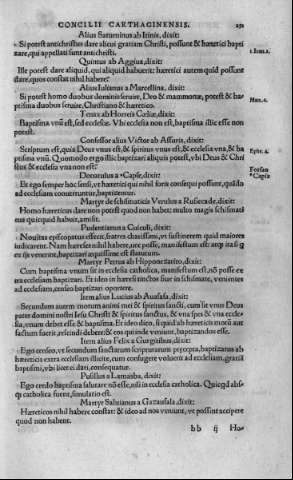 CONCILII CARTHAGINENSIS. 252
Alius Saturninus ab Irinis, dixit:
Si potest antichristus dare alicui gratiam Christi, possunt & hæretici bapti
zare, qui appellati sunt antichristi. 1 Ioan. 2.
Quintus ab Aggiua, dixit:
Ille potest dare aliquid, qui aliquid habuerit: hæretici autem quid possunt
dare, quos constat nihil habere?
Alius Iulianus a Marcellina, dixit:
Si potest homo duobus dominis seruire, Deo & mammonæ, potest & ba- Mat. 6.
ptisma duobus seruire, Christiano & hæretico.
Tenax ab Horreis Cœliæ, dixit:
Baptisma vnũ est, sed ecclesiæ. Vbi ecclesia non est, baptisma illic esse non
potest.
Confessor alius Victor ab Assuris, dixit:
Scriptum est, quia Deus vnus est, & spiritus vnus est, & ecclesia vna, & ba Ephe. 4.
ptisma vnũ. Quomodo ergo illic baptizari aliquis potest, vbi Deus & Chri
stus & ecclesia vna non est?
Donatulus a *Capse, dixit: Forsan *Capsa
Et ego semper hoc sensi, vt hæretici qui nihil foris consequi possunt, quãdo
ad ecclesiam conuertuntur, baptizentur.
Martyr de schismaticis Verulus a Rusiccade, dixit:
Homo hæreticus dare non potest quod non habet: multo magis schismati
cus quod habuit, amisit.
Pudentianus a Cuiculi, dixit:
Nouitas episcopatus effecit, fratres charissimi, vt sustinerem quid maiores
iudicarent. Nam hæreses nihil habere, nec posse, manifestum est: atq; ita si q
ex ijs venerint, baptizari æquissime est statutum.
Martyr Petrus ab Hippone diarito, dixit:
Cum baptisma vnum sit in ecclesia catholica, manifestum est, nõ posse ex
tra ecclesiam baptizari. Et ideo in hæresi tinctos siue in schismate, venientes
ad ecclesiam, censeo baptizari oportere.
Item alius Lucius ab Ausafa, dixit:
Secundum autem motum animi mei & spiritus sancti, cum sit vnus Deus
pater domini nostri Iesu Christi & spiritus sanctus, & vna spes & vna eccle-
sia, vnum debet esse & baptisma. Et ideo dico, si quid ab hæreticis motũ aut
factum fuerit, rescindi debere: & eos qui inde veniunt, baptizandos esse.
Item alius Felix a Gurgitibus, dixit:
Ego censeo, vt secundum sanctarum scripturarum præcepta, baptizatus ab
hæreticis extra ecclesiam illicite, cum confugere voluerit ad ecclesiam, gratiã
baptismi, vbi licet ei dari, consequatur.
Pusillus a Lamasba, dixit:
Ego credo baptisma salutare nõ esse, nisi in ecclesia catholica. Quicqd abs-
q; catholica fuerit, simulatio est.
Martyr Saluianus a Gazaufala, dixit:
Hæreticos nihil habere constat: & ideo ad nos veniunt, vt possint accipere
quod non habent.
bb ij Ho-